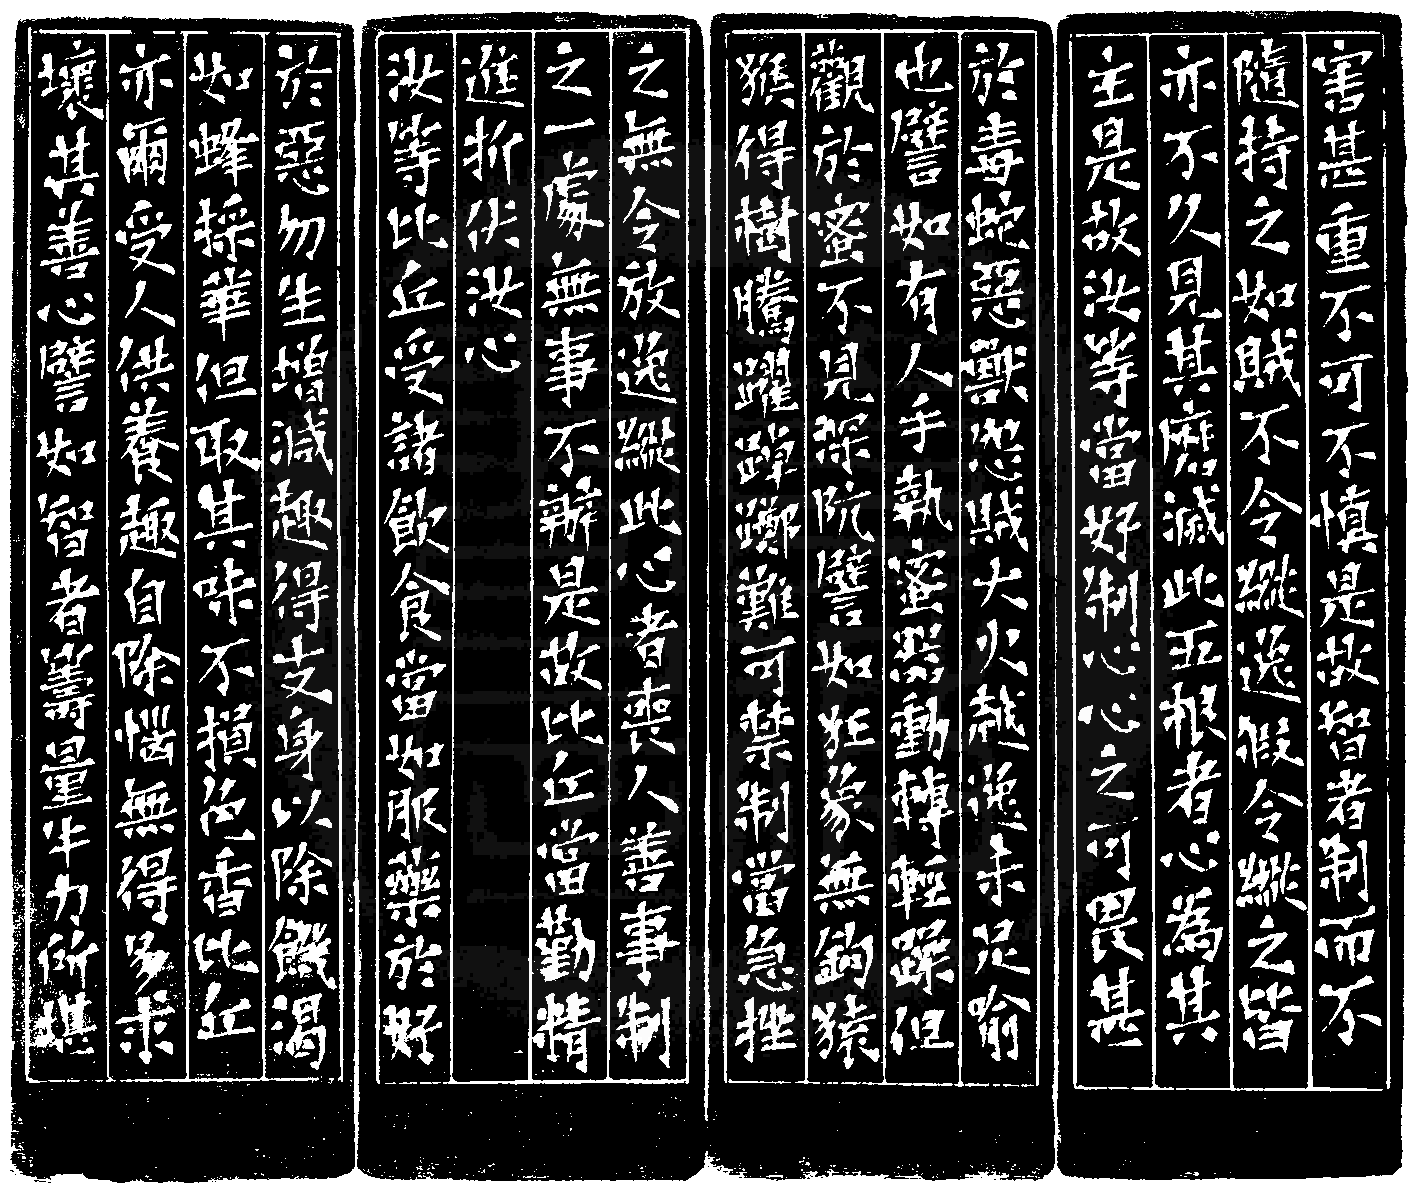 害甚重不可不慎是故智者制而不
隨持之如賊不令縱逸假令縱之皆
亦不久見其磨滅此五根者心為其
主是故汝等當好制心心之可畏甚
於毒蛇惡獸怨賊大火越逸未足喻
也譬如有人手執蜜器動轉輕躁但
觀於蜜不見深阬譬如狂象無鉤猿
猴得樹騰躍踔躑難可禁制當急挫
之無令放逸縱此心者喪人善事制
之一處無事不辦是故比丘當勤精
進折伏汝心
汝等比丘受諸飲食當如服藥於好
於惡勿生增減趣得支身以除饑渴
如蜂採華但取其味不損色香比丘
亦爾受人供養趣自除惱無得多求
壞其善心譬如智者籌量牛力所堪